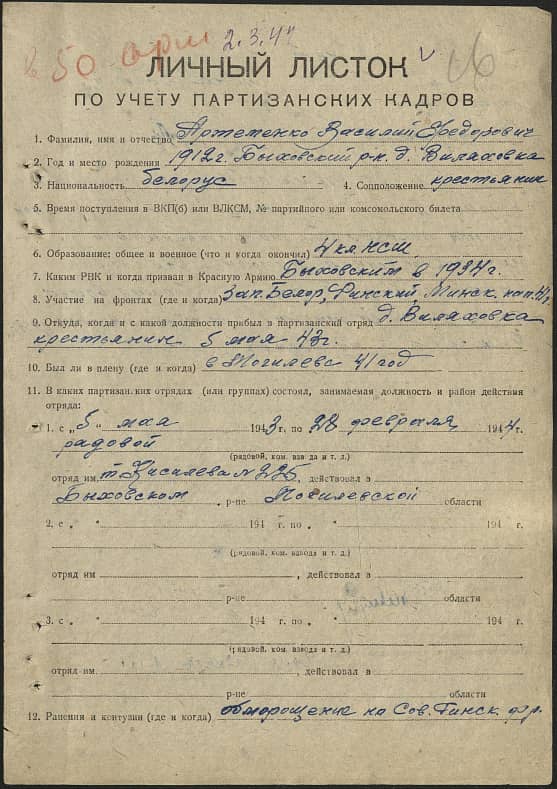 в 50 арм 2.3.44 v
ЛИЧНЫЙ ЛИСТОК
ПО УЧЕТУ ПАРТИЗАНСКИХ КАДРОВ
1. Фамилия, имя и отчество Артеменко Василий Федорович
2. Год и место рождения 1912 г. Быховский р-н д. Вилаховка
3. Национальность белорус 4. Соцположение крестьянин
5. Время поступления в ВКП(б) или ВЛКСМ, № партийного или комсомольского билета
6. Образование: общее и военное (что и когда окончил) 4 кл НСШ
7. Каким РВК и когда призван в Красную Армию Быховским в 1934 г.
8. Участие на фронтах (где и когда) Зап. Белор, Финский, Минск. нап. 41г.
9. Откуда, когда и с какой должности прибыл в партизанский отряд д. Вилаховка
крестьянин 5 мая 43г.
10. Был ли в плену (где и когда) в Могилеве 41 год
11. В каких партизан.ких отрядах (или группах) состоял, занимаемая должность и район действия
отряда:
1. с „5" мая 1943 г. по „28 февраля, 1944 г.
рядовой
(рядовой, ком. взвода и т. д.)
отряд им. т. Касилева № 225, действовал в
Быховском р-не Могилевской области
2. с „ " 194 г. по „ " 194 г.
(рядовой, ком. взвода и т. д.)
отряд им , действовал в
р-не области
3. с „ " 194 г. по „ " 194 г.
(рядовой, ком. взвода и т. д.)
отряд им. , действовал в
р-не области
12. Ранения и контузии (где и когда) обморощение на Сов. Финск. фр.